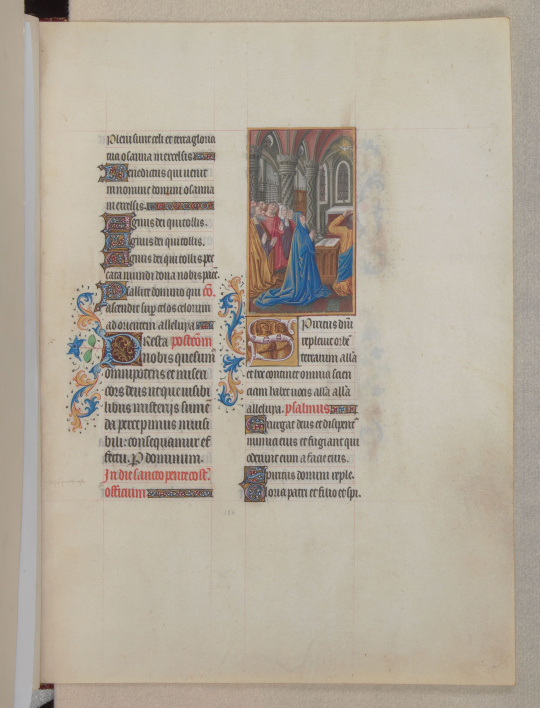 Pleni sunt celi et terra gloria
tua osanna in excelsis
Benedictus qui venit
in nomine domini osanna
in excelsis
Agnus dei qui tollis.
Agnus dei qui tollis.
Agnus dei qui tollis pec
cata mundi dona nobis pacē.
Psallite domino qui cō.
ascendit sup celos celorum
ad orientem alleluya
Presta postcōm̄
nobis quesum̄
omnipotens et miseri
cors deus ut que visibi
libus misterijs sumē
da percepimus invisi
bili consequamur ef
fectu. P dominum.
In die sancto penthecost.
officium
Spiritus dn̄i
replevit orbē
terrarum alla
et hoc continet omnia scien
ciam habet vocis alla alla
alleluya. psalmus
Exurgat deus et dissipent
inimici eius et fugiant qui
oderunt eum a facie eius.
Spiritus domini reple.
Gloria patri et filio et spi.